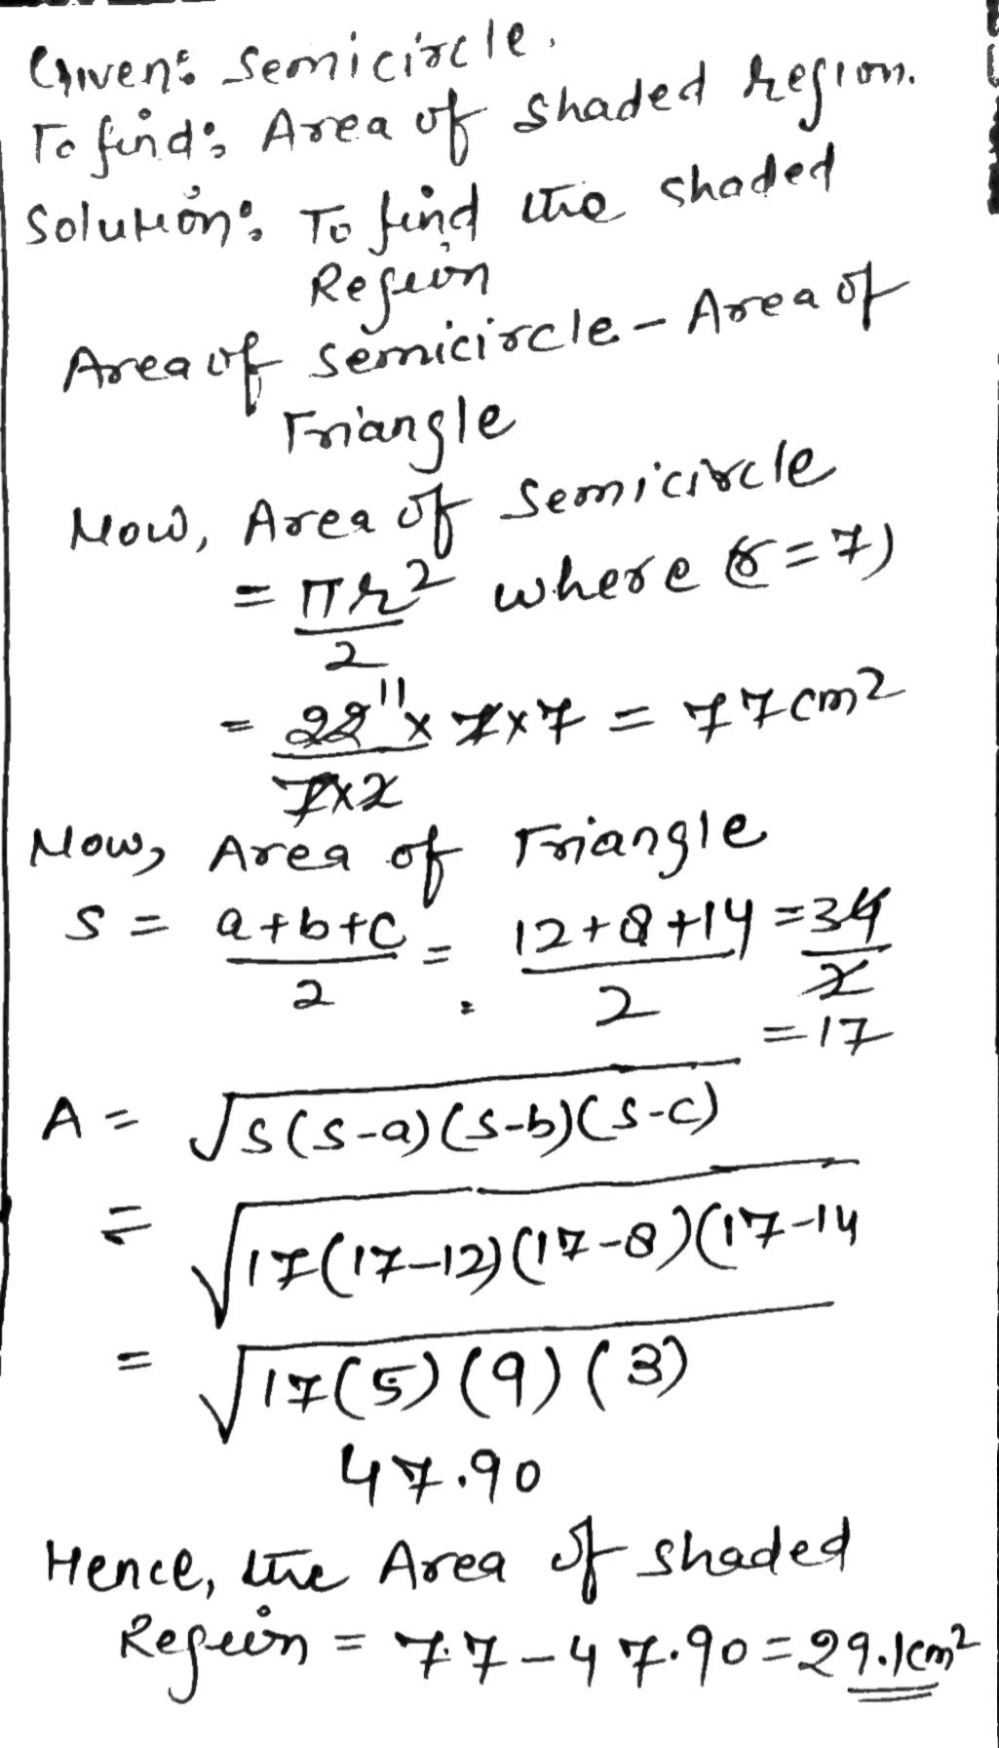 Given: Semicircle.
To find: Area of shaded region.
Solution: To find the shaded
Region
Area of semicircle - Area of
Triangle
Now, Area of Semicircle
= πr²/2 where (r=7)
= 22 11 x 7x7 / 7x2 = 77cm²
Now, Area of Triangle
S = a+b+c/2 = 12+8+14/2 = 34/2
=17
A = √s(s-a)(s-b)(s-c)
= √17(17-12)(17-8)(17-14
= √17(5)(9)(3)
47.90
Hence, the Area of shaded
Region = 77-47.90=29.1cm²